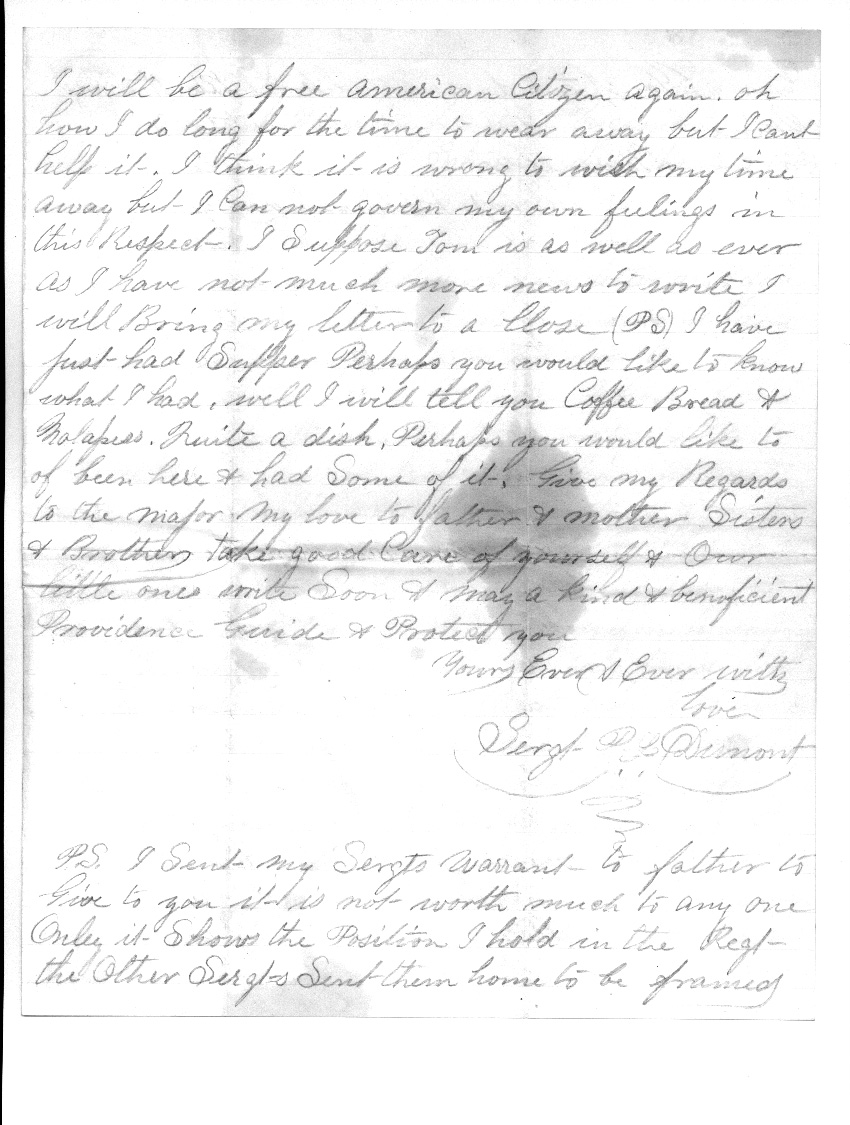 I will be a free American Citizen again. oh
how I do long for the time to wear away but I Cant
help it. I think it is wrong to wish my time
away but I Can not govern my own feelings in
this Respect. I Suppose Tom is as well as ever
as I have not much more news to write I
will Bring my letter to a Close (PS) I have
just had Supper Perhaps you would like to know
what I had. well I will tell you Coffee Bread &
Molasses. Quite a dish. Perhaps you would like to
of been here & had Some of it. Give my Regards
to the major my love to father & mother Sisters
& Brothers take good Care of yourself & Our
little ones write Soon & may a kind & beneficient
Providence Guide & Protect you
Yours Ever & Ever with
love
Sergt P. G. Dumont
P.S. I Sent my Sergts Warrant to father to
Give to you it is not worth much to any one
Only it Shows the Position I hold in the Regt
the Other Sergts Sent them home to be framed